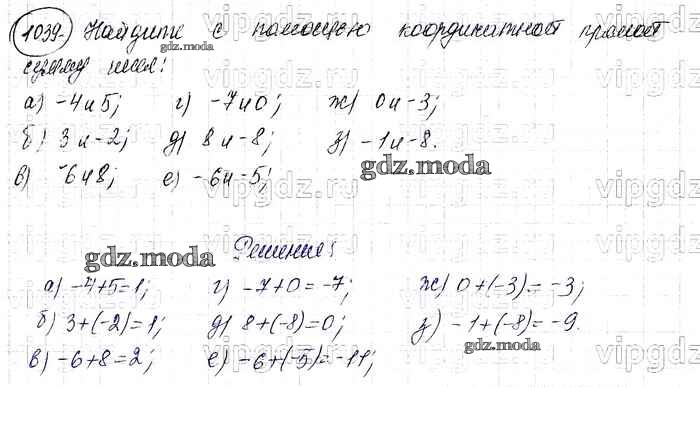 1039. Найдите с помощью координатной прямой
сумму чисел:
а) -4 и 5; г) -7 и 0; ж) 0 и -3;
б) 3 и -2; д) 8 и -8; з) -1 и -8.
в) -6 и 8; е) -6 и -5;
gdz.moda
gdz.moda
gdz.moda
Решение:
а) -4+5=1; г) -7+0=-7; ж) 0+(-3)=-3;
б) 3+(-2)=1; д) 8+(-8)=0; з) -1+(-8)=-9.
в) -6+8=2; е) -6+(-5)=-11;
gdz.moda
vipgdz.ru